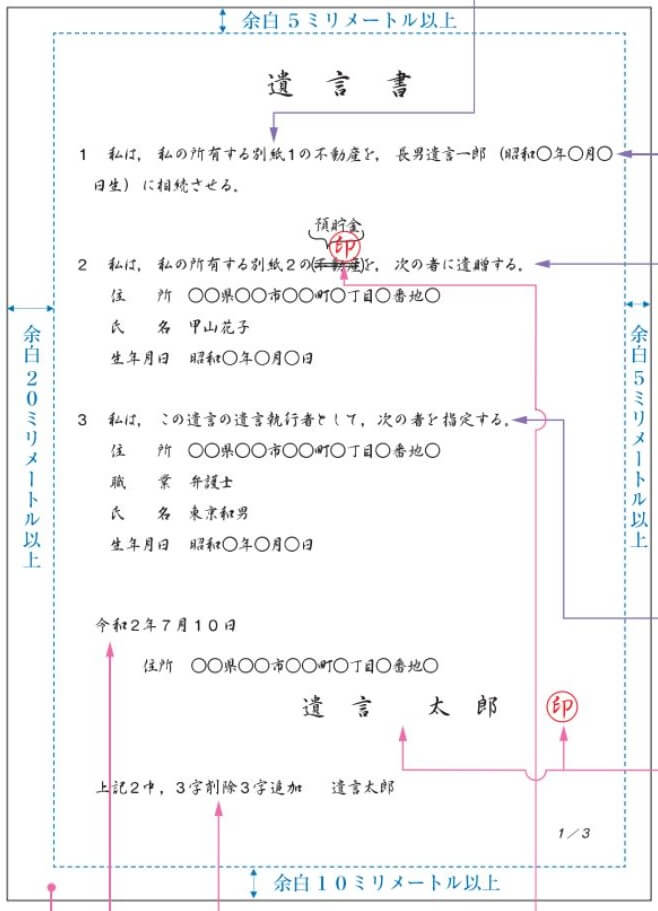 余白5ミリメートル以上
遺言書
1 私は,私の所有する別紙1の不動産を,長男遺言一郎(昭和〇年〇月〇
日生)に相続させる。
預貯金
印
2 私は,私の所有する別紙2の(不動産)を,次の者に遺贈する。
住 所 〇〇県〇〇市〇〇町〇丁目〇番地〇
氏 名 甲山花子
生年月日 昭和〇年〇月〇日
余白20ミリメートル以上
余白5ミリメートル以上
3 私は,この遺言の遺言執行者として,次の者を指定する。
住 所 〇〇県〇〇市〇〇町〇丁目〇番地〇
職 業 弁護士
氏 名 東京和男
生年月日 昭和〇年〇月〇日
令和2年7月10日
住所 〇〇県〇〇市〇〇町〇丁目〇番地〇
遺言 太郎 印
上記2中,3字削除3字追加 遺言太郎
1/3
余白10ミリメートル以上